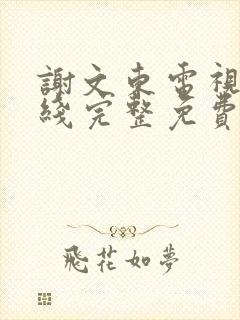 謝文東電視
綫完整免費
飛花如夢